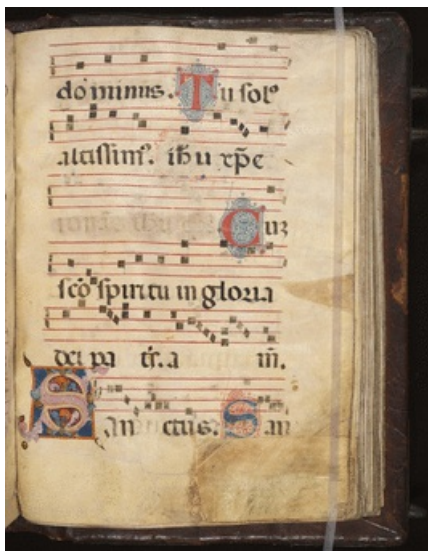 dominus. Tu sol⁹
altissim⁹. ihu xp̄e
Cuȝ
sc̄o spiritu in gloria
dei pa tr̄. a m̄.
San ctus. San